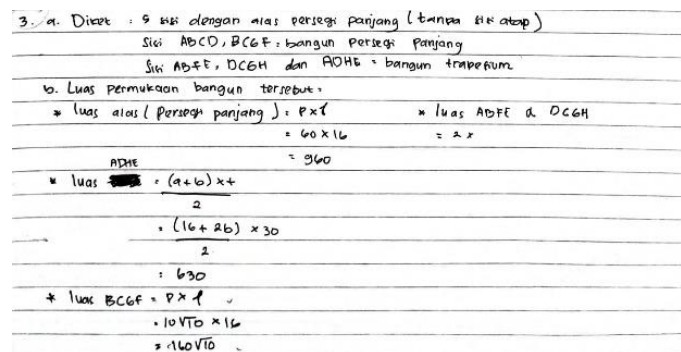 3. a. Diket : 5 sisi dengan alas persegi panjang (tanpa sisi atap)
Sisi ABCD, BCGF : bangun persegi panjang
Sisi ABFE, DCGH dan ADHE = bangun trapesium
b. Luas permukaan bangun tersebut :
* luas alas (Persegi panjang) : P x l
= 60 x 16
= 960
* luas ABFE & DCGH
= 2 x
* luas ADHE = (a+b) x t
2
= (16 + 26) x 30
2
: 630
* luas BCGF = P x l
= 10√10 x 16
= 160√10